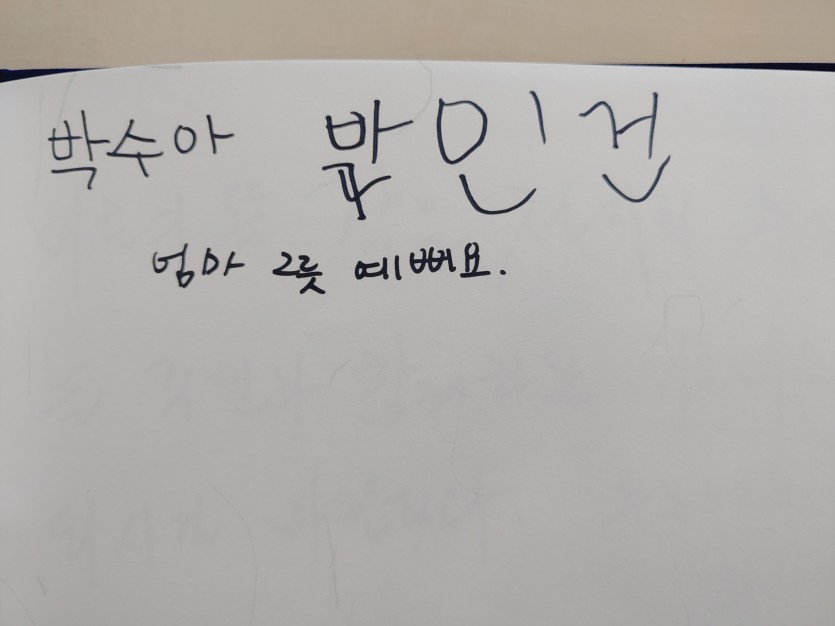 박수아 박인건
엄마 그릇 예뻐요.